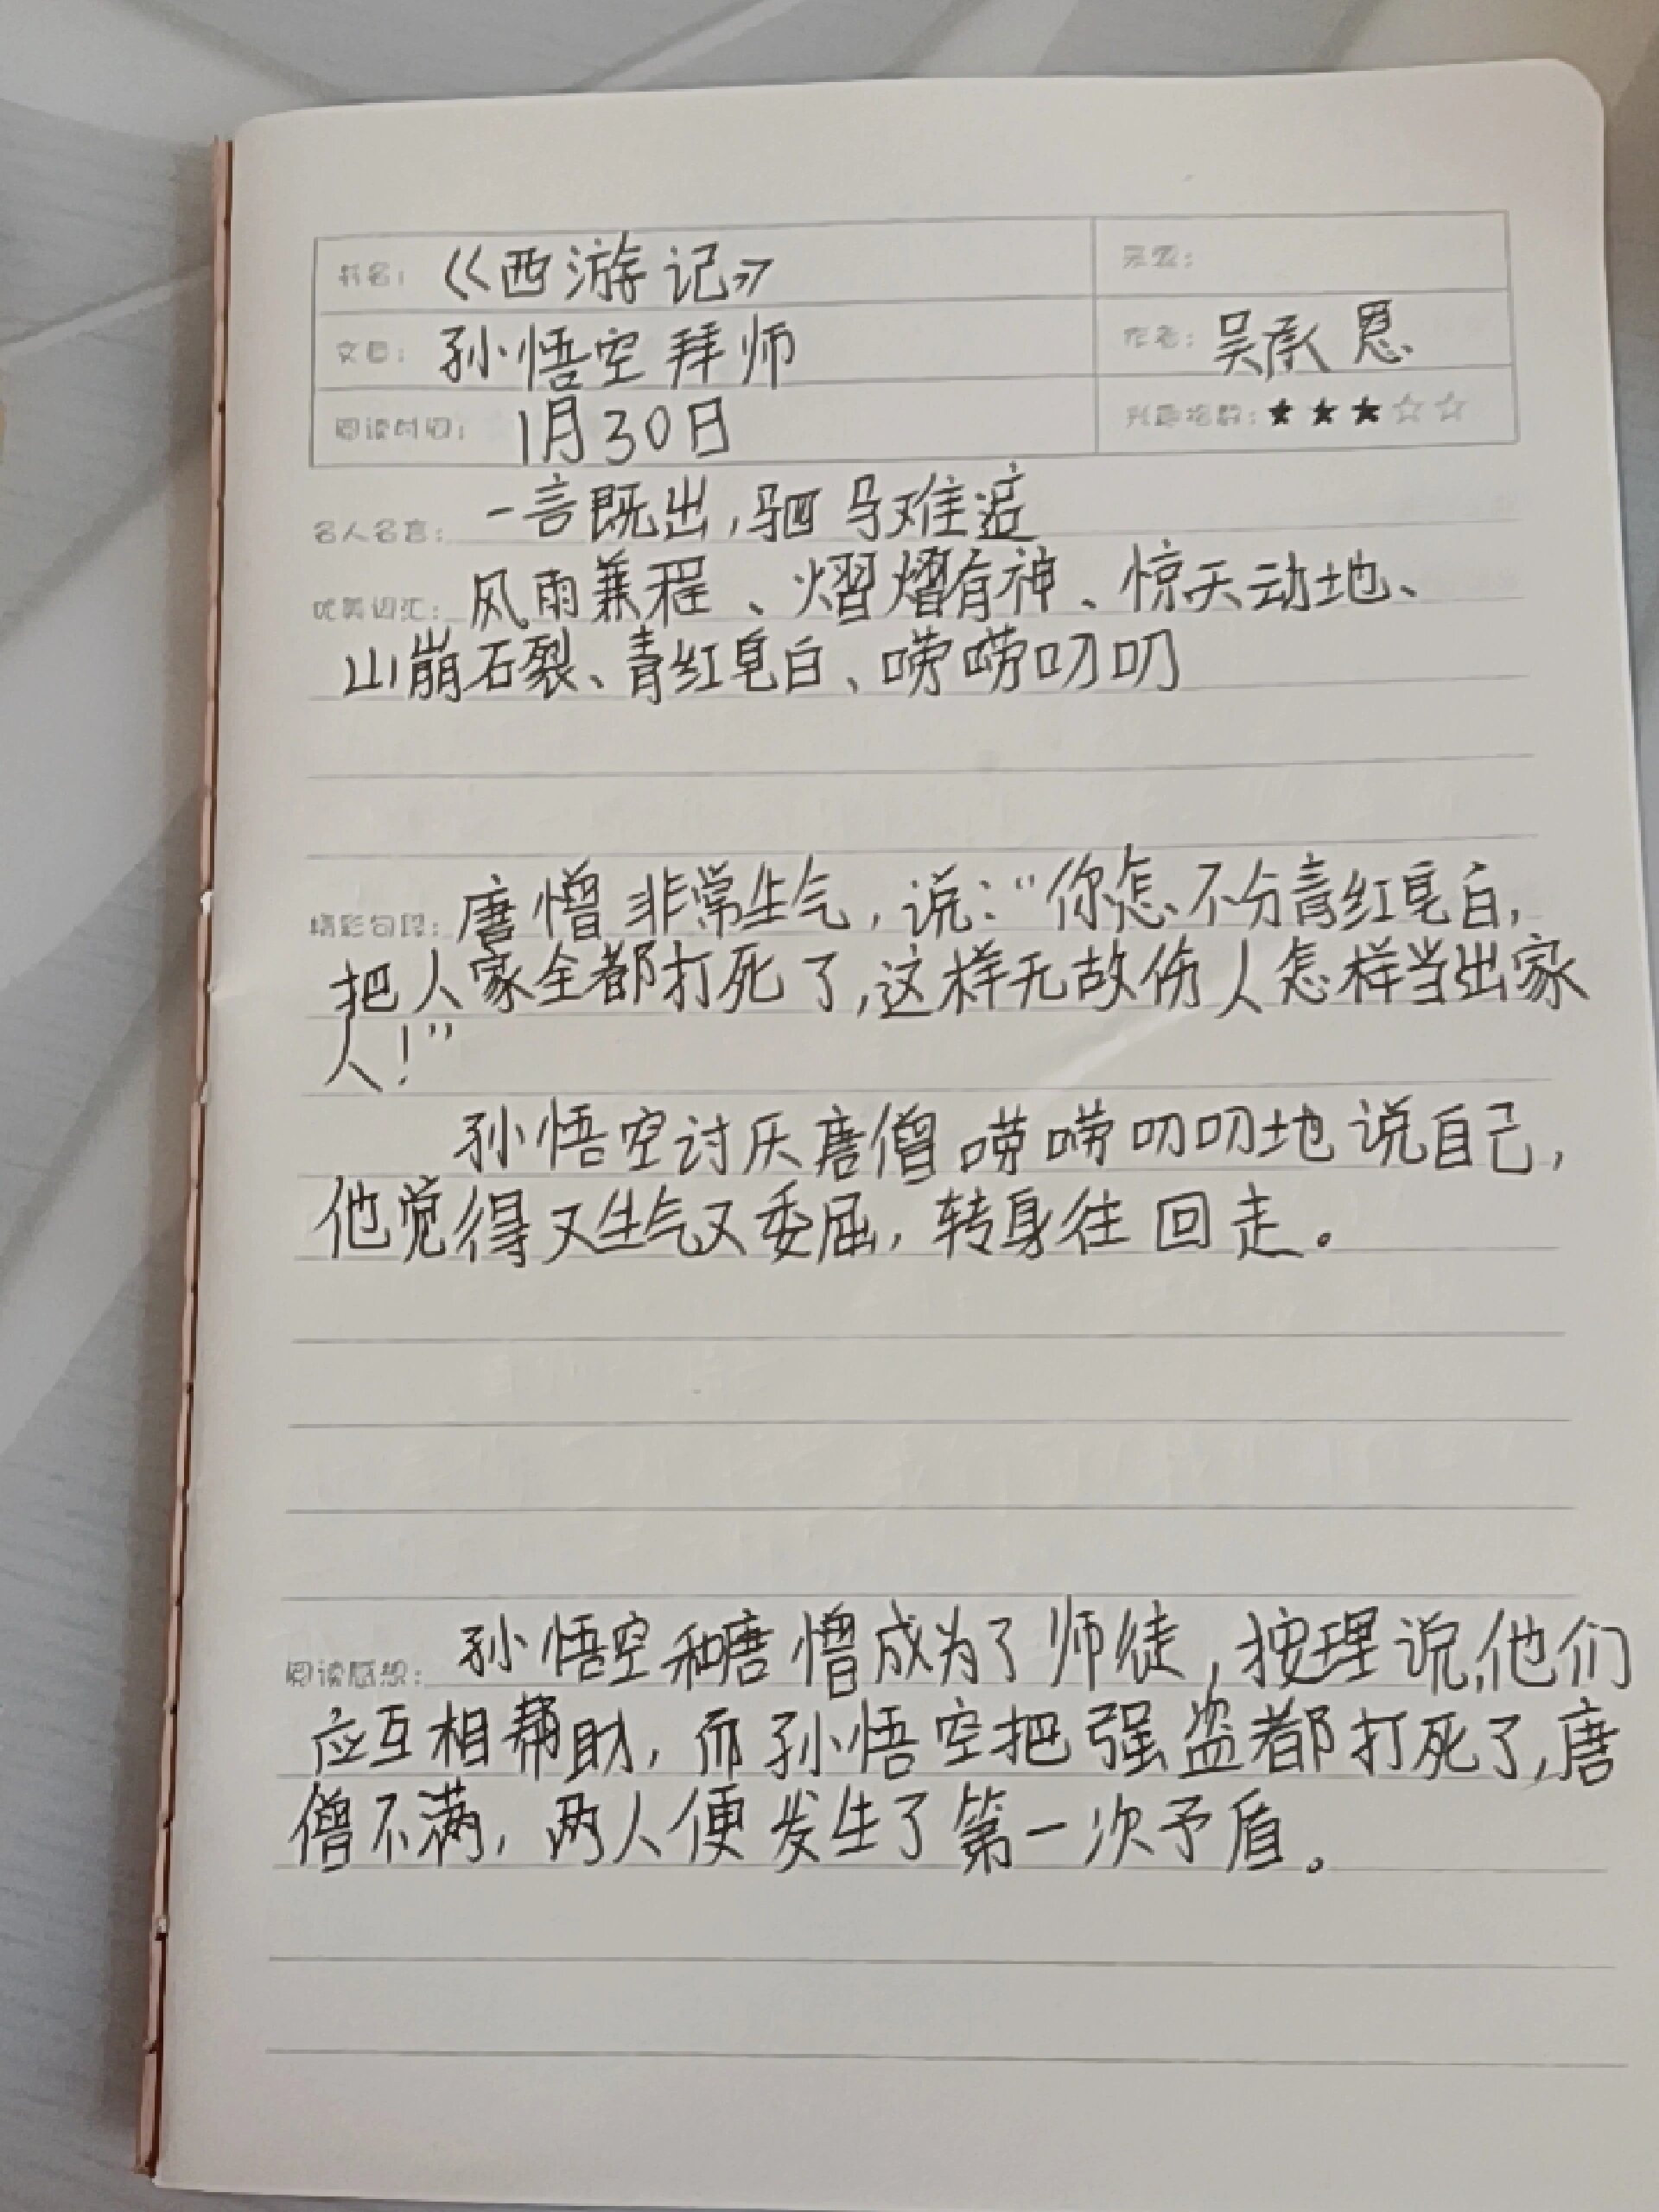 书名： 《西游记》 类型：
文目： 孙悟空拜师 作者： 吴承恩
阅读时间： 1月30日 兴趣指数：★★★☆☆
名人名言： 一言既出，驷马难追
优美词汇： 风雨兼程、熠熠有神、惊天动地、
山崩石裂、青红皂白、唠唠叨叨
精彩句段： 唐憎非常生气，说：“你怎不分青红皂白，
把人家全都打死了，这样无故伤人怎样当出家
人！”
孙悟空讨厌唐僧唠唠叨叨地说自己，
他觉得又生气又委屈，转身往回走。
阅读感想： 孙悟空和唐憎成为了师徒，按理说，他们
应互相帮助，而孙悟空把强盗都打死了，唐
僧不满，两人便发生了第一次矛盾。